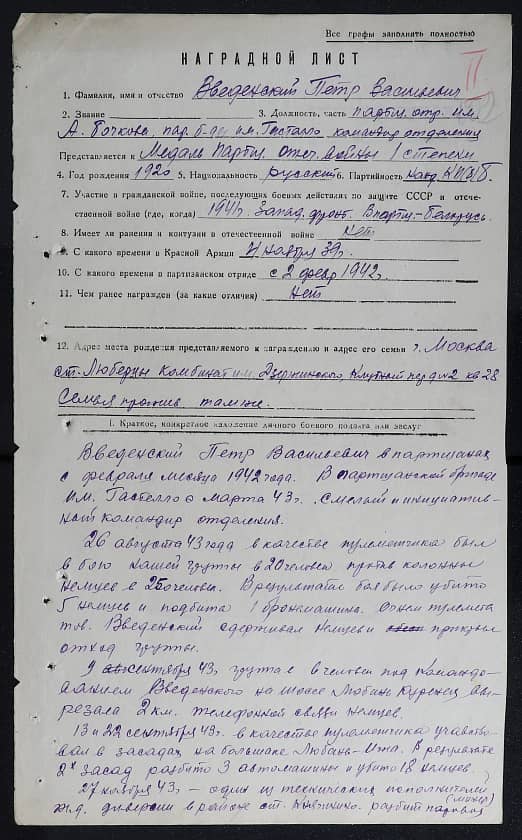 Все графы заполнять полностью
НАГРАДНОЙ ЛИСТ
II
1. Фамилия, имя и отчество Введенский Петр Васильевич
2. Звание 3. Должность, часть партиз. отр. им.
А. Бочкова, пар. б-ды им. Гастелло командир отделения
Представляется к Медаль Партиз. отеч. войны 1 степени
4. Год рождения 1920 5. Национальность русский 6. Партийность канд. КП(б)Б.
7. Участие в гражданской войне, последующих боевых действиях по защите СССР и отече-
ственной войне (где, когда) 1941г. Запад. фронт. В партиз.-Беларусь.
8. Имеет ли ранения и контузии в отечественной войне Нет.
9. С какого времени в Красной Армии ноября 39г.
10. С какого времени в партизанском отряде с 2 февр 1942г.
11. Чем ранее награжден (за какие отличия) Нет
12. Адрес места рождения представляемого к награждению и адрес его семьи г. Москва
ст. Люберцы Комбинат им. Дзержинского, пер д №2 кв 28
Семья прожив там же.
I. Краткое, конкретное изложение личного боевого подвига или заслуг
Введенский Петр Васильевич в партизанах
с февраля месяца 1942 года. В партизанской бригаде
им. Гастелло с марта 43г. Смелый и инициатив-
ный командир отделения.
26 августа 43 года в качестве пулеметчика был
в бою нашей группы в 20 человек против колонны
немцев в 250 человек. В результате боя было убито
5 немцев и подбита 1 бронемашина. Огнем пулемета
тов. Введенский сдерживал немцев и прикрыл
отход группы.
9 сентября 43г. группа в человек под командо-
ванием Введенского на шоссе Любань Куренец вы-
резала 2 км. телефонной связи немцев.
13 и 22 сентября 43г. в качестве пулеметчика участво-
вал в засадах на большаке Любань-Илья. В результате
2х засад разбито 3 автомашины и убито 18 немцев.
27 ноября 43г. - один из технических исполнителей (минер)
ж.д. диверсии в районе ст. Княжино. разбит паровоз